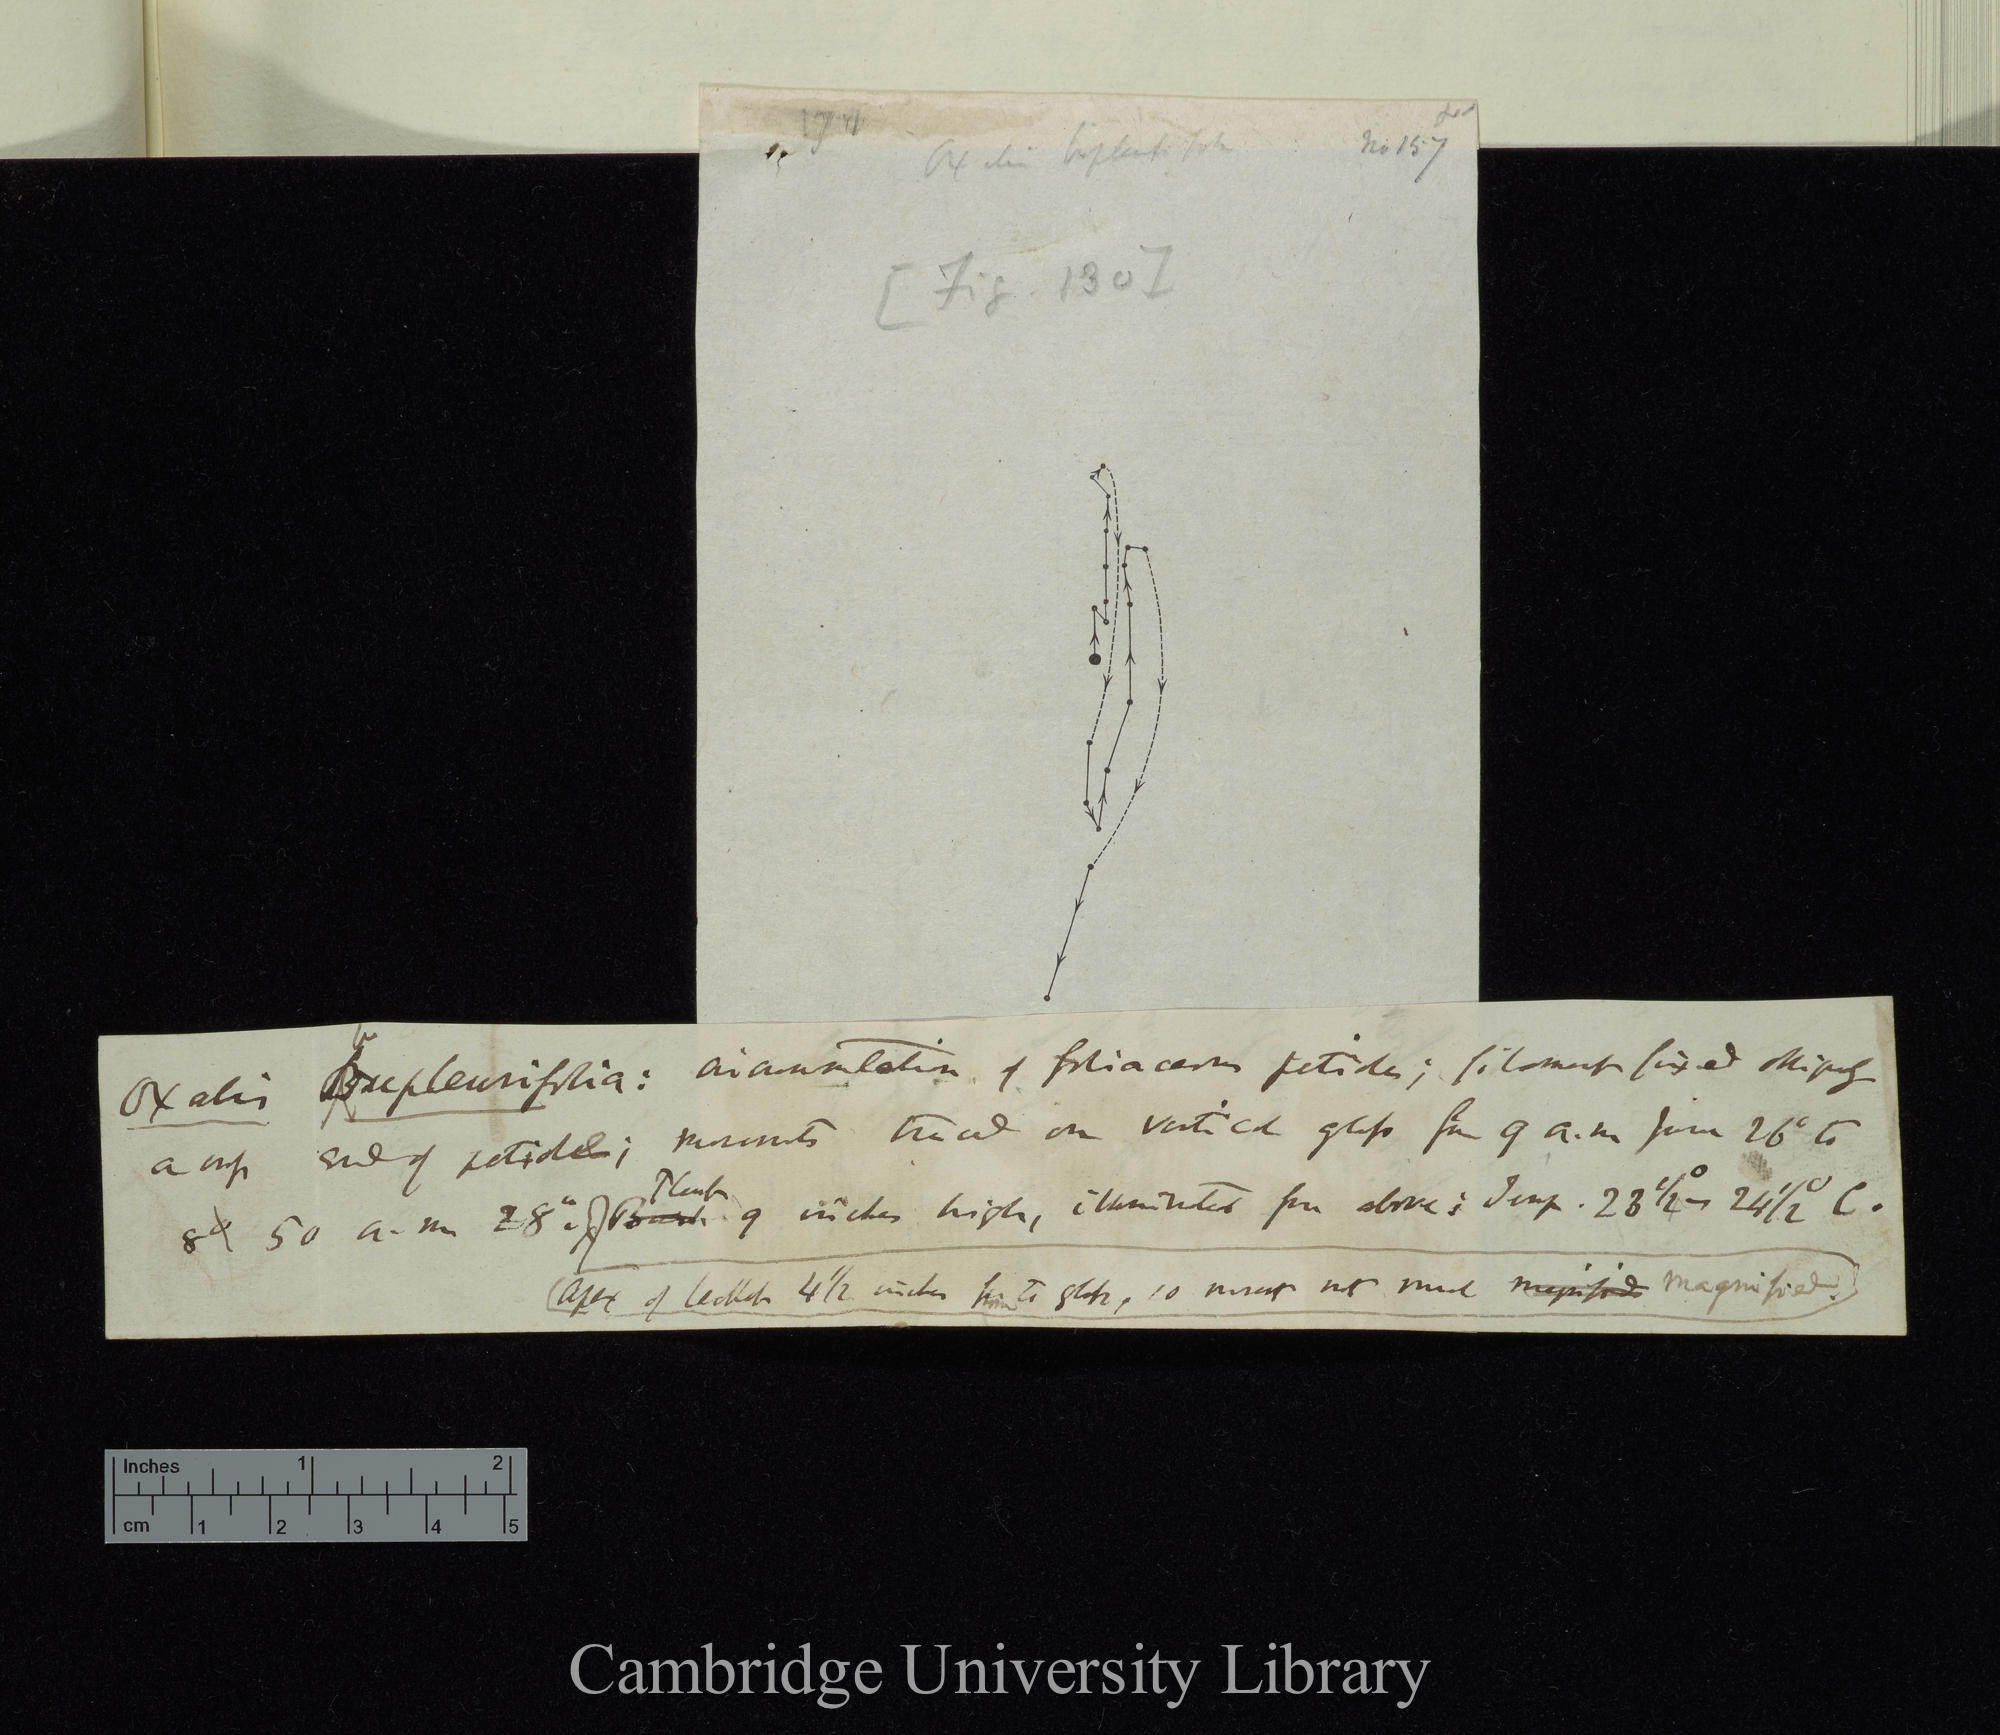 Oxalis bupleurifolia No 157
[Fig. 130]
Oxalis Bupleurifolia: circumnutation of foliaceous petiole; filament fixed obliquely
across end of petiole; movements traced on vertical glass from 9 a.m June 26° to
8° 50 a.m 28°. Bush Plant 9 inches high, illuminated from above; Temp. 23 1/2°- 24 1/2° C.
Apex of leaflet 4 1/2 inches from to glass, so movt not much magnified magnified.
Inches 1 2
cm 1 2 3 4 5
Cambridge University Library